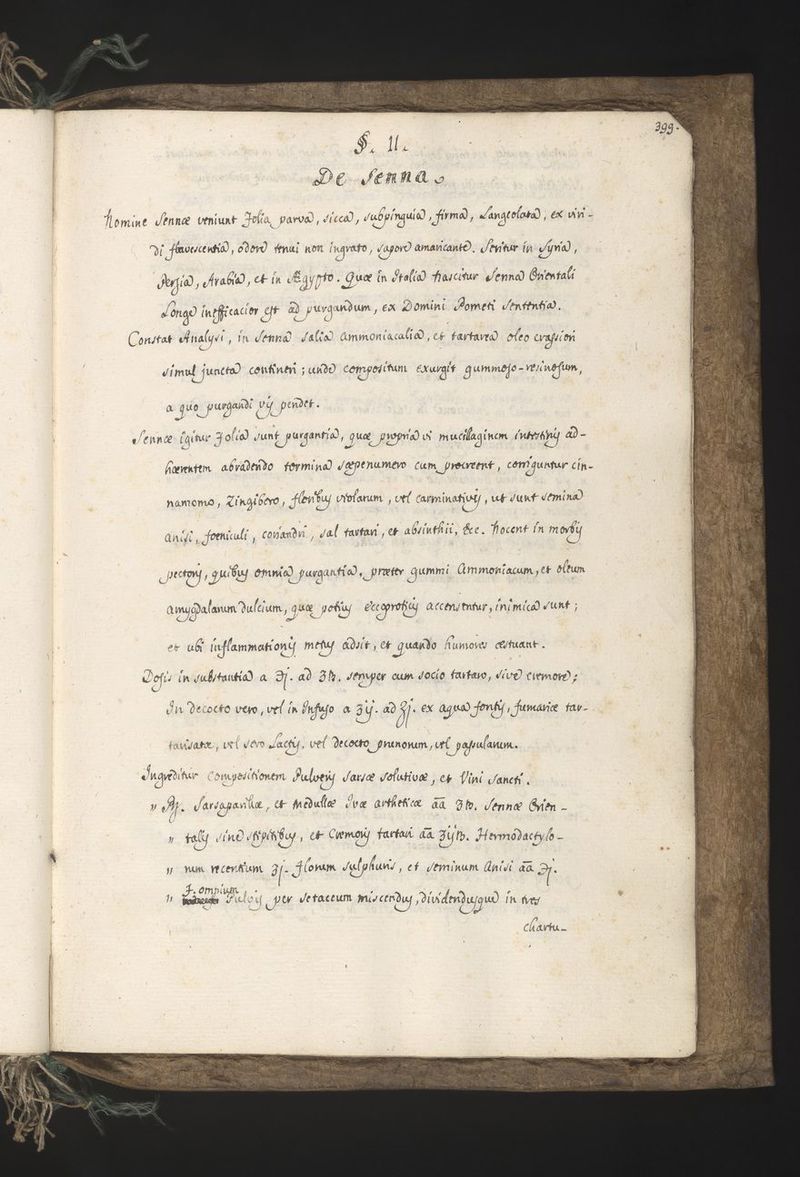 399.
§. II.
De Senna.
Nomine Sennæ veniunt Folia parva, sicca, subpinguia, firma, Langeolata, ex viri-
di flavescentia, odore tenui non ingrato, sapore amaricante. Seritur in Syria,
Persia, Arabia, et in Ægypto. Quæ in Italia nascitur Senna Orientali
Longe inefficacior est ad purgandum, ex Domini Pometi Sententia.
Constat Analysi, in Senna Salia Ammoniacalia, et tartarea oleo crassiori
simul juncta contineri; unde compositum exurgit gummoso-resinosum,
a quo purgandi vis pendet.
Sennæ igitur Folia sunt purgantia, quæ propria vi mucilaginem intestinis ad-
hærentem abradendo tormina sæpenumero cum procreent, corriguntur cin-
namomo, Zingibero, floribus violarum, vel carminativis, ut sunt semina
anisi, foeniculi, coriandri, sal tartari, et absinthii, &c. Nocent in morbis
pectoris, quibus omnia purgantia, præter gummi Ammoniacum, et oleum
amygdalarum dulcium, quæ potius eccoprotijs accensentur, inimica sunt;
et ubi inflammationis metus adsit, et quando humores æstuant.
Dosis in substantia a ℈j. ad ʒß. semper cum socio tartaro, sive cremore;
In decocto vero, vel in Infuso a ʒij. ad ℥j. ex aqua fontis, fumariæ tar-
tarisatæ, vel sero Lactis, vel decocto prunorum, vel passularum.
Ingreditur Compositionem Pulveris Sarsæ solutivæ, et Vini Sancti.
" ℞. Sarsaparillæ, et Medullæ Ivæ artheticæ āā ʒß. Sennæ Orien-
" talis sine stipitibus, et Cremoris tartari āā ʒijß. Hermodactylo-
" rum recentium ʒj. Florum Sulphuris, et seminum Anisi āā ℈j.
" F. omnium Pulvis per setaceum miscendus, dividendusque in tres
chartu-